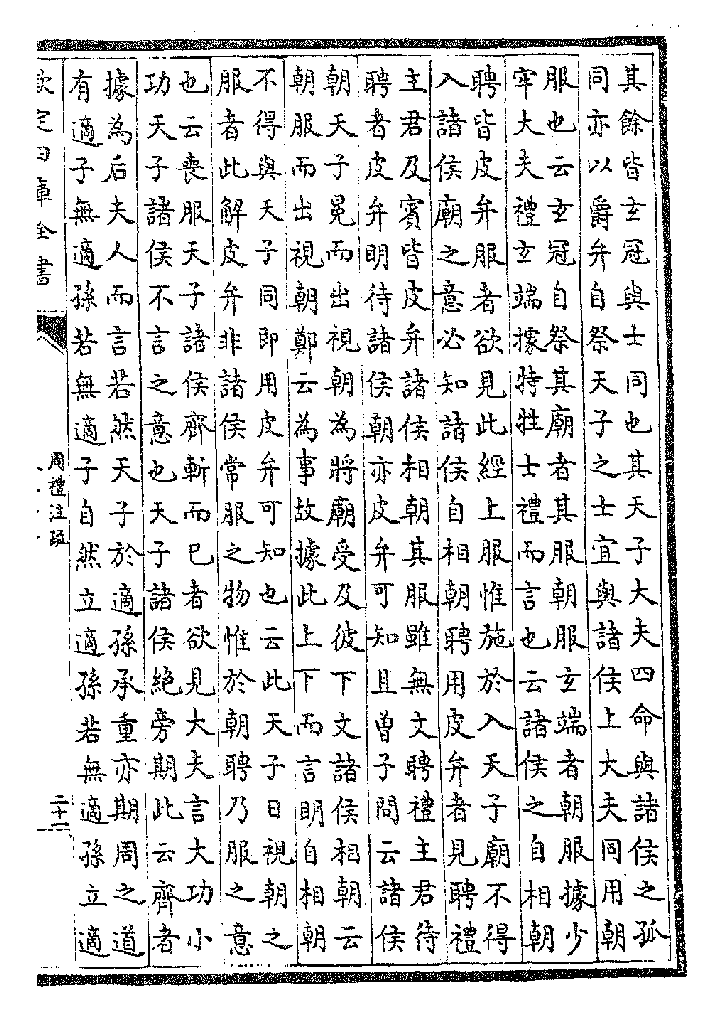 其餘皆玄冠與士同也其天子大夫四命與諸侯之孤
同亦以爵弁自祭天子之士宜與諸侯上大夫同用朝
服也云玄冠自祭其廟者其服朝服玄端者朝服據少
牢大夫禮玄端據特牲士禮而言也云諸侯之自相朝
聘皆皮弁服者欲見此經上服惟施於入天子廟不得
入諸侯廟之意必知諸侯自相朝聘用皮弁者見聘禮
主君及賓皆皮弁諸侯相朝其服雖無文聘禮主君待
聘者皮弁明待諸侯朝亦皮弁可知且曾子問云諸侯
朝天子冕而出視朝為將廟受及彼下文諸侯相朝云
朝服而出視朝鄭云為事故據此上下而言明自相朝
不得與天子同即用皮弁可知也云此天子日視朝之
服者此解皮弁非諸侯常服之物惟於朝聘乃服之意
也云喪服天子諸侯齊斬而已者欲見大夫言大功小
功天子諸侯不言之意也天子諸侯絶旁期此云齊者
據為后夫人而言若然天子於適孫承重亦期周之道
有適子無適孫若無適子自然立適孫若無適孫立適
欽定四庫全書
周禮注疏